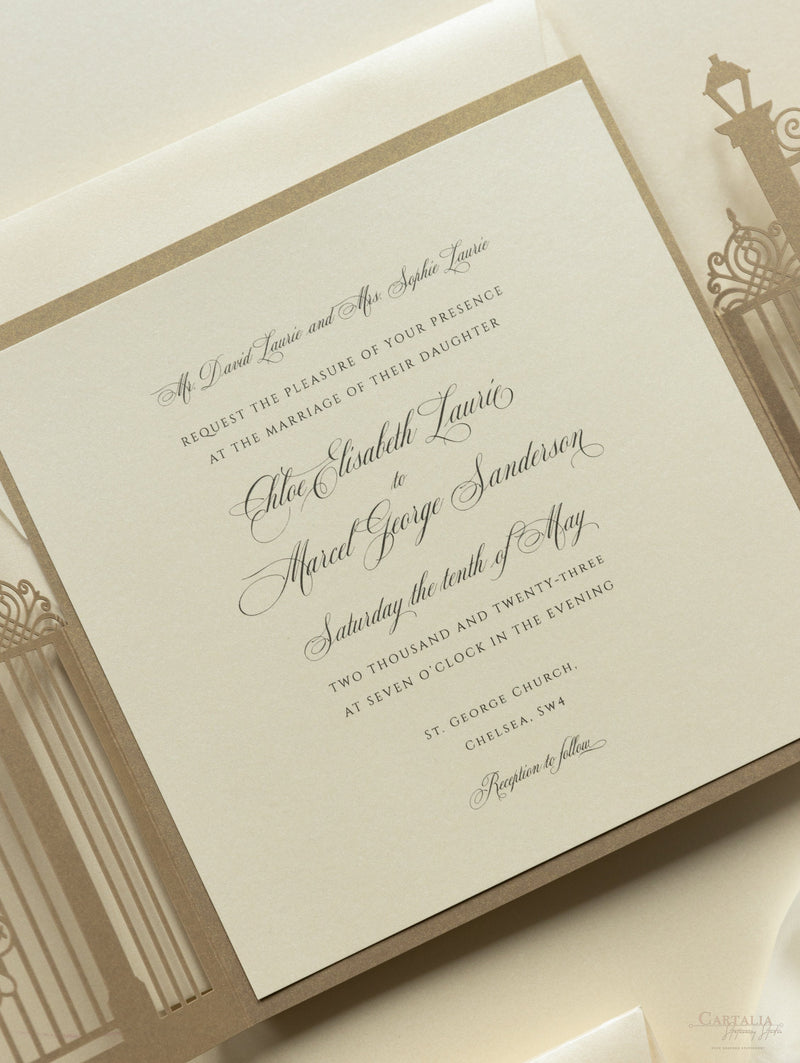 Mr. David Laurie and Mrs. Sophie Laurie
REQUEST THE PLEASURE OF YOUR PRESENCE
AT THE MARRIAGE OF THEIR DAUGHTER
Chloe Elisabeth Laurie
to
Marcel George Sanderson
Saturday the tenth of May
TWO THOUSAND AND TWENTY-THREE
AT SEVEN O'CLOCK IN THE EVENING
ST. GEORGE CHURCH,
CHELSEA, SW4
Reception to follow
CARTALIA